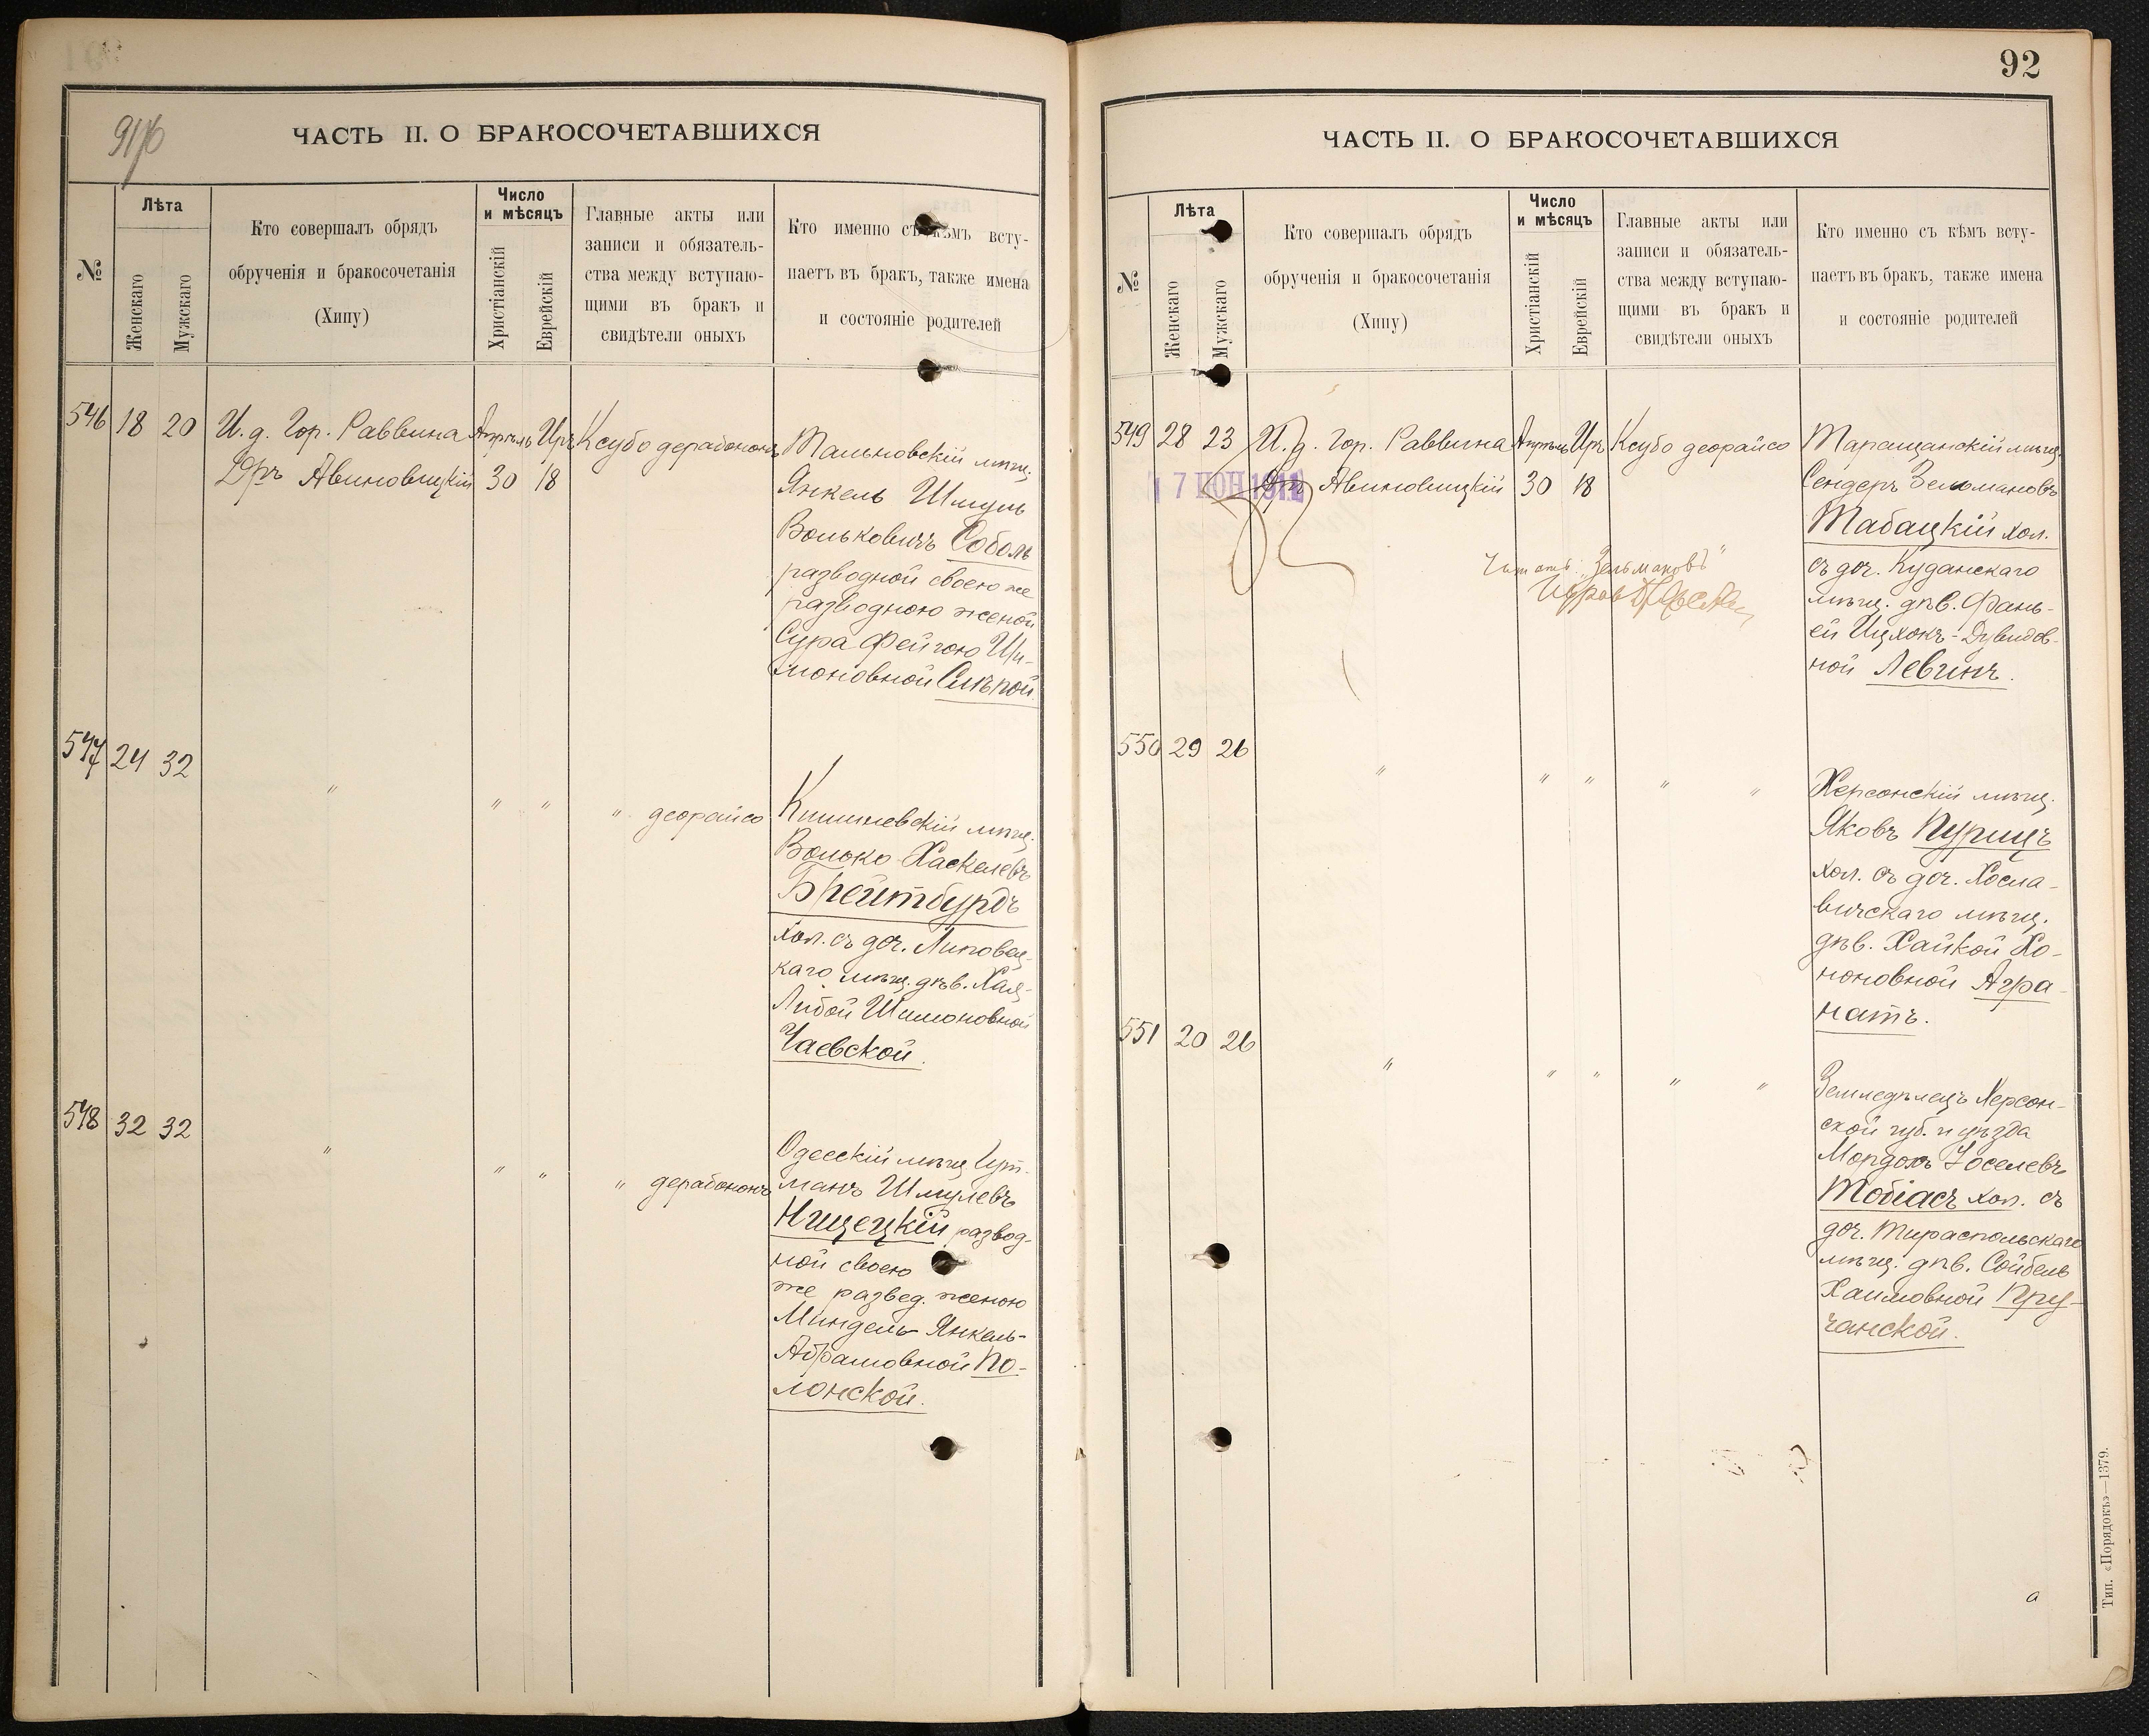 91/б
ЧАСТЬ II. О БРАКОСОЧЕТАВШИХСЯ
№
Лѣта
Женскаго
Мужскаго
Кто совершалъ обрядъ
обрученія и бракосочетанія
(Хипу)
Число
и мѣсяцъ
Христіанскій
Еврейскій
Главные акты или
записи и обязатель-
ства между вступаю-
щими въ бракъ и
свидѣтели оныхъ
Кто именно съ кѣмъ всту-
паетъ въ бракъ, также имена
и состояніе родителей
546 18 20 И. д. Гор. Раввина Апрѣль Иръ Ксубо дерабононъ
Дръ Авиновицкій 30 18
Тальновскій мѣщ.
Янкель Шмуль
Вольковичъ Соболь
разводной своею же
разводною женой
Сура Фейгою Ши-
моновной Слѣпой.
547 24 32 " " " " деорайсо
Кишиневскій мѣщ.
Волько Хаскелевъ
Брейтбурдъ
хол. съ доч. Липовец-
каго мѣщ. дѣв. Хая-
Либой Шимоновной
Чаевской.
548 32 32 " " " " дерабононъ
Одесскій мѣщ. Гут-
манъ Шмулевъ
Нищецкій развод-
ной своею
же развед. женою
Миндель Янкель-
Абрамовной По-
лонской.
92
ЧАСТЬ II. О БРАКОСОЧЕТАВШИХСЯ
№
Лѣта
Женскаго
Мужскаго
Кто совершалъ обрядъ
обрученія и бракосочетанія
(Хипу)
Число
и мѣсяцъ
Христіанскій
Еврейскій
Главные акты или
записи и обязатель-
ства между вступаю-
щими въ бракъ и
свидѣтели оныхъ
Кто именно съ кѣмъ всту-
паетъ въ бракъ, также имена
и состояніе родителей
549 28 23 И. д. Гор. Раввина Апрѣль Иръ Ксубо деорайсо
17 ІЮН 1911
Дръ Авиновицкій 30 18
Читать: "Зельмановъ"
Таращанскій мѣщ.
Сендеръ Зельмановъ
Табацкій хол.
съ доч. Куданскаго
мѣщ. дѣв. Фань-
ей Ицхокъ-Дувидов-
ной Левинъ.
550 29 26 " " " " "
Херсонскій мѣщ.
Яковъ Пурицъ
хол. съ доч. Хосла-
вичскаго мѣщ.
дѣв. Хайкой Хо-
ноновной Агра-
натъ.
551 20 26 " " " " "
Земледѣлецъ Херсон-
ской губ. и уѣзда
Мордохъ Іоселевъ
Тобіасъ хол. съ
доч. Тираспольскаго
мѣщ. дѣв. Сойбель
Хаимовной Пру-
чанской.
а
Тип. «Порядокъ»—1379.